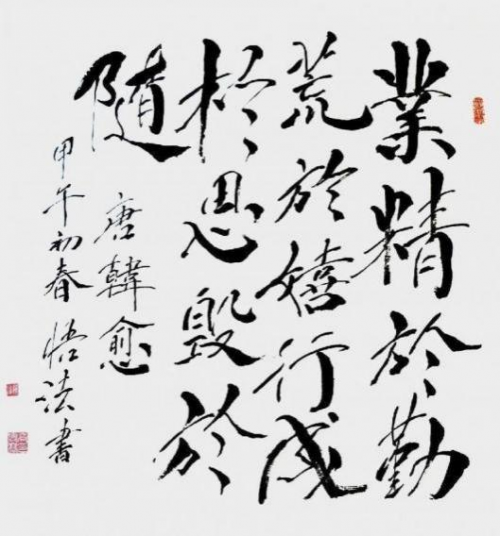 業精於勤
荒於嬉行成
於思毀於
随
唐韓愈
甲午初春悟法書